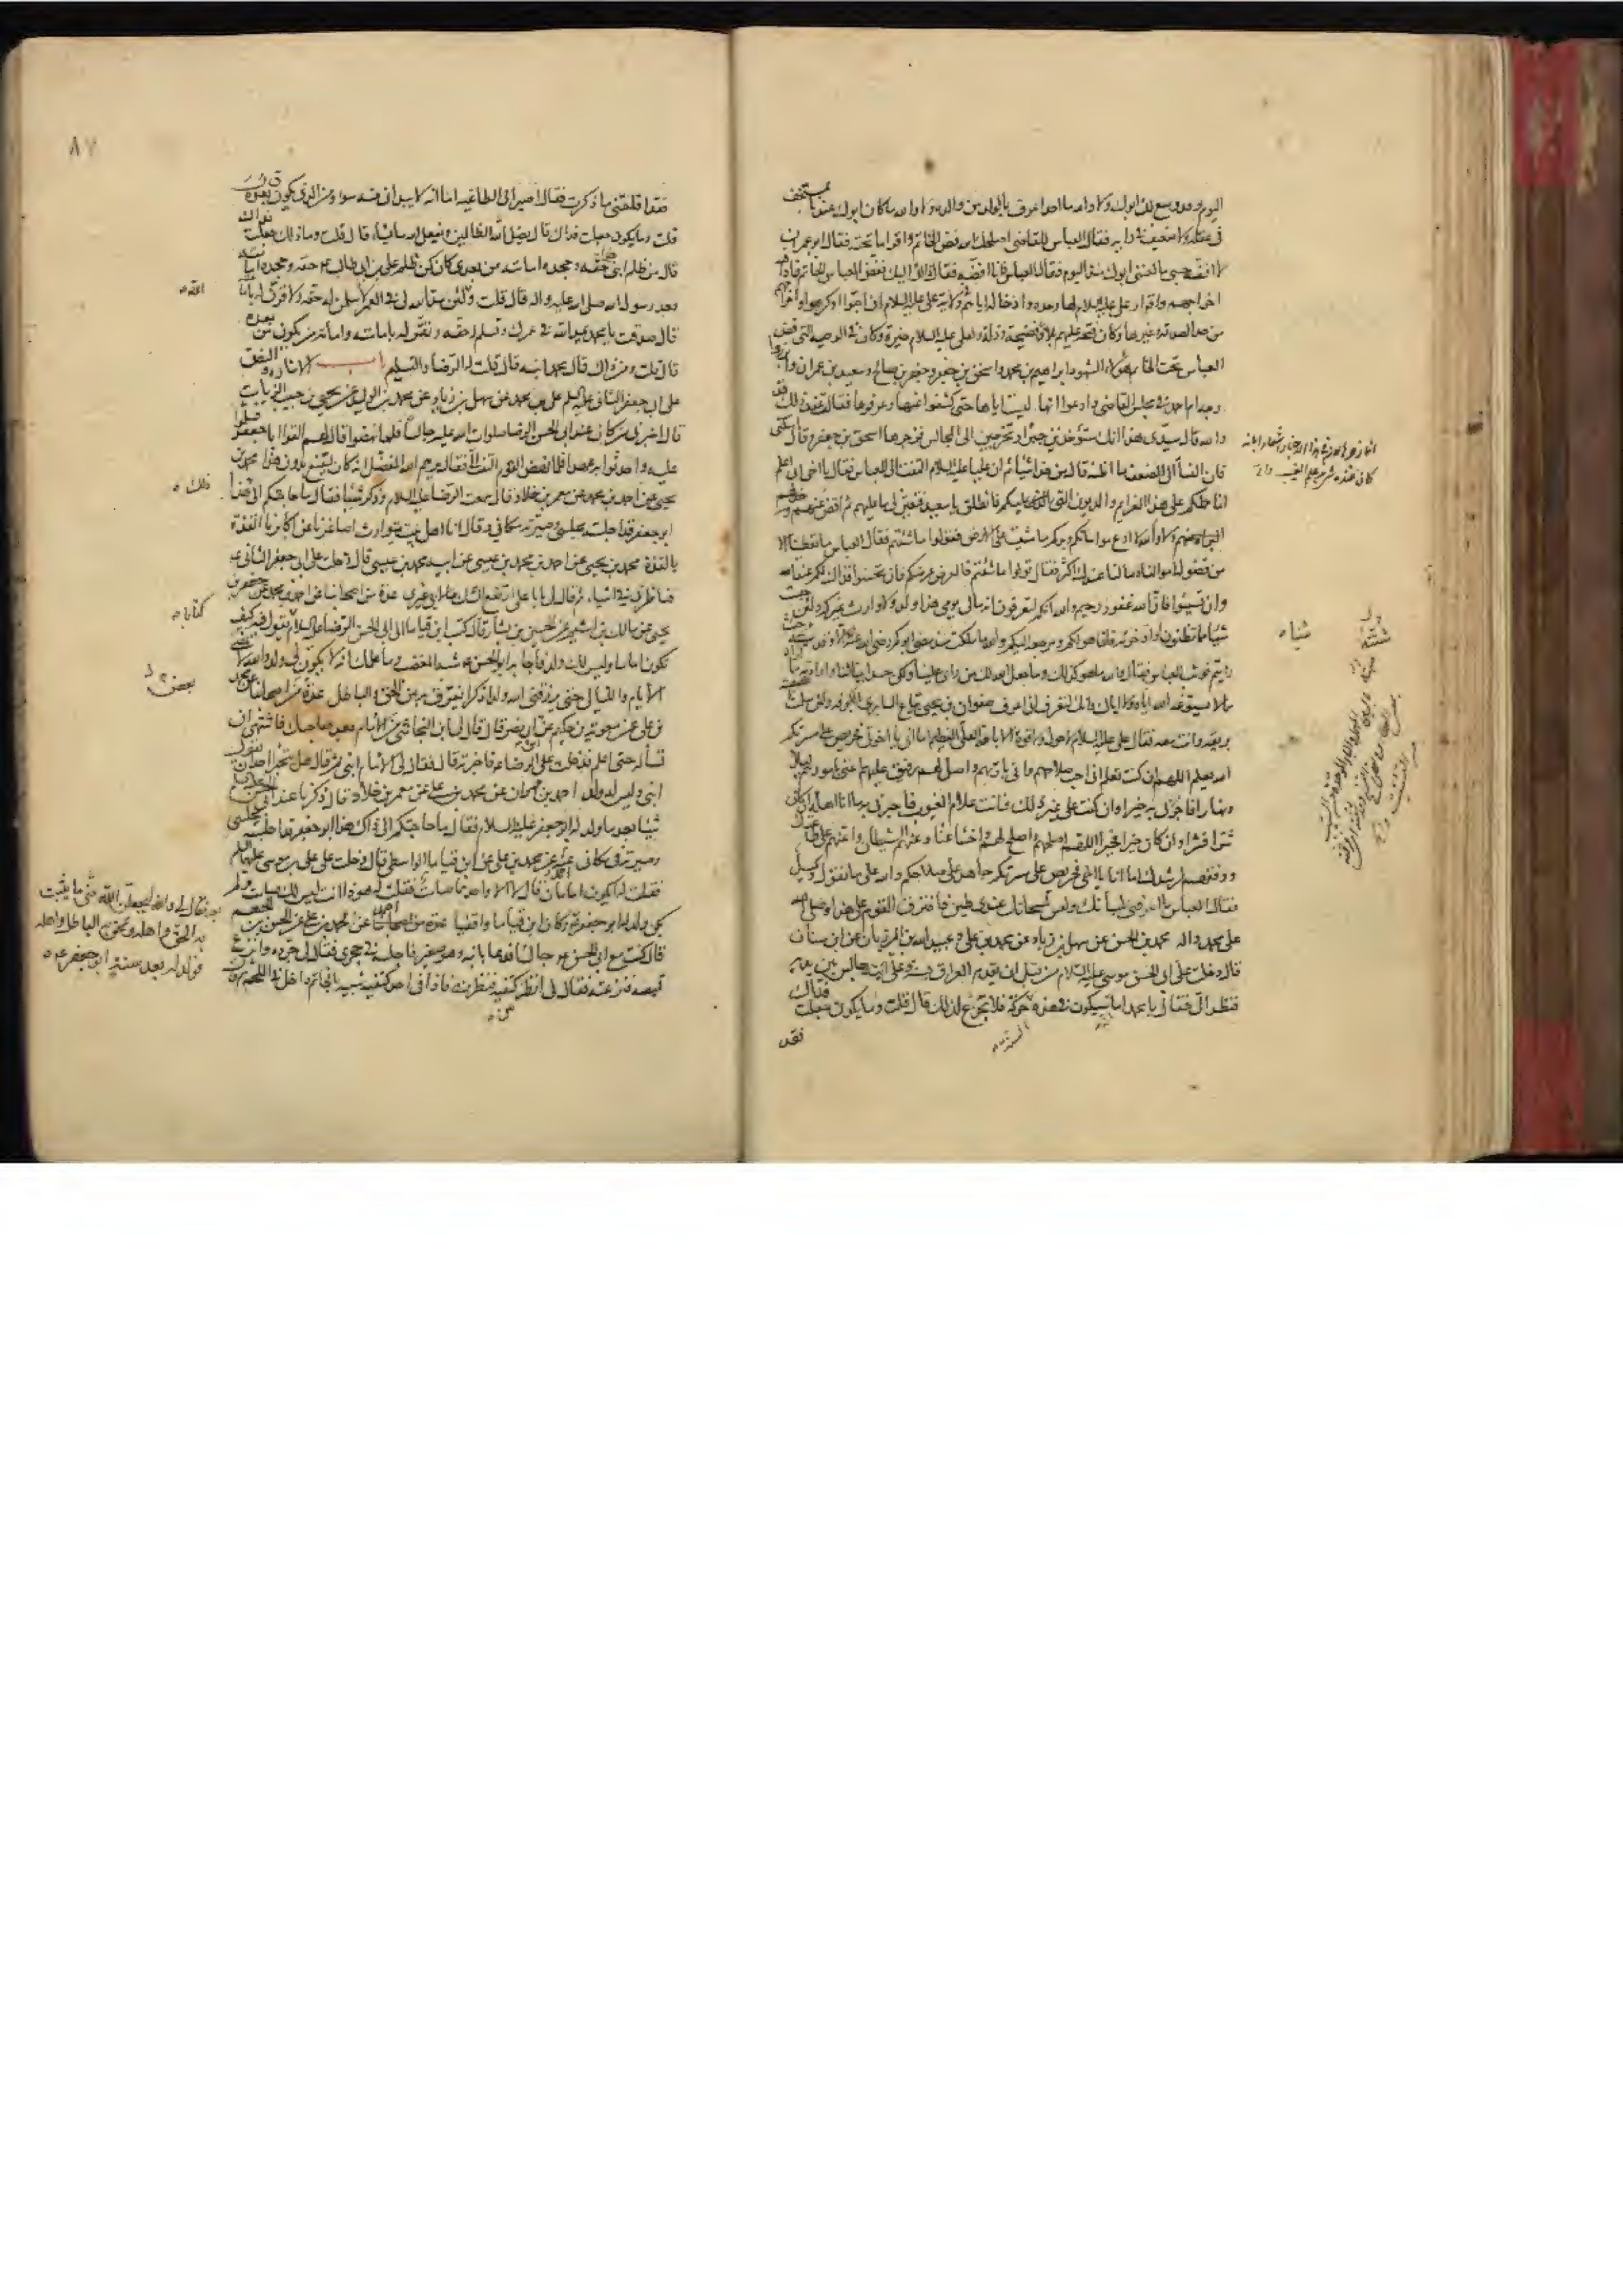 اليوم وقد وسع لك ابوك ولا والله ما احد اعرف بالولد من والده ولا والله ما كان ابوك عندنا بمستخف
في عقله ولا ضعيف في رايه فقال العباس للقاضي اصلحك الله فض الخاتم واقرا ما تحته فقال ابو عمران
لا افضه حسبي ما لعنني ابوك منذ اليوم فقال العباس فانا افضه فقال ذاك اليك ففض العباس الخاتم فاذا فيه
اخراجهم واقرار علي عليه السلام لها وحده وادخاله اياهم في ولاية علي عليه السلام ان احبوا او كرهوا واخراجهم
من حد الصدقة وغيرها وكان فتحه عليهم بلاء وفضيحة وذلة ولعلي عليه السلام خيرة وكان في الوصية التي فض
العباس تحت الخاتم هؤلاء الشهود ابراهيم بن محمد واسحق بن جعفر وجعفر بن صالح وسعيد بن عمران وابرزوا
وجه ام احمد في مجلس القاضي وادعوا انها ليست اياها حتى كشفوا عنها وعرفوها فقالت عند ذلك قد
والله قال سيدي هذا انك ستؤخذين جبرا وتخرجين الى المجالس فزجرها اسحق بن جعفر وقال اسكتي
فان النساء الى الضعف ما اظنه قال من هذا شيئا ثم ان عليا عليه السلام التفت الى العباس فقال يا اخي اني اعلم
انما حملكم على هذا الغرايم والديون التي عليكم فانطلق يا سعيد فتعين لي ما عليهم ثم اقض عنهم
ولا والله لا ادع مواساتكم وبركم ما مشيت على الارض فقولوا ما شئتم فقال العباس ما تعطينا الا
من فضول اموالنا وما لنا عندك اكثر فقال قولوا ما شئتم فالعرض عرضكم فان تحسنوا فذاك لكم عند الله
وان تسيئوا فان الله غفور رحيم والله انكم لتعرفون انه مالي يومي هذا ولد ولا وارث غيركم ولئن حبست
شيئا مما تظنون او ادخرته فانما هو لكم ومرجعه اليكم والله ما ملكت منذ مضى ابوكم رضي الله عنه شيئا الا وقد سيبته حيث
رايتم فوثب العباس فقال والله ما هو كذلك وما جعل الله لك من راي علينا ولكن حسد ابينا لنا وارادته ما
اراد مما لا يسوغه الله اياه ولا اياك وانك لتعرف اني اعرف صفوان بن يحيى بياع السابري بالكوفة ولئن سلمت
بريقه وانت معه فقال علي عليه السلام لا حول ولا قوة الا بالله العلي العظيم اما اني يا اخوتي فحريص على مسرتكم
الله يعلم اللهم ان كنت تعلم اني احب صلاحهم واني بار بهم واصل لهم رفيق عليهم اعنى بامورهم ليلا
ونهارا فاجزني به خيرا وان كنت على غير ذلك فانت علام الغيوب فاجزني به ما انا اهله ان كان
شرا فشرا وان كان خيرا فخيرا اللهم اصلحهم واصلح لهم واخسا عنا وعنهم الشيطان واعنهم على طاعتك
ووفقهم لرشدك اما انا يا اخي فحريص على مسرتكم جاهد على صلاحكم والله على ما نقول وكيل
فقال العباس ما اعرفني بلسانك وليس لمسحاتك عندي طين فافترق القوم على هذا وصلى الله
على محمد واله محمد بن الحسن عن سهل بن زياد عن محمد بن علي وعبيد الله بن المرزبان عن ابن سنان
قال دخلت على ابي الحسن موسى عليه السلام من قبل ان يقدم العراق بسنة وعلي ابنه جالس بين يديه
فنظر الي فقال يا محمد اما سيكون في هذه حركة فلا تجزع لذلك قال قلت وما يكون جعلت فداك
السنة
فقد
شيئاه
٨٧
فقد اقلقتني ما ذكرت فقال اصير الى الطاغية اما انه لا يبداني منه سوء ومن الذي يكون بعده
قلت وما يكون جعلت فداك قال يضل الله الظالمين ويفعل الله ما يشاء قال قلت وما ذلك جعلت فداك
قال من ظلم ابني حقه وجحده امامته من بعدي كان كمن ظلم علي بن ابي طالب ع حقه وجحده امامته
بعد رسول الله صلى الله عليه واله قال قلت ولئن مد الله لي في العمر لاسلمن له حقه ولاقرن له بامامته
قال صدقت يا محمد يمد الله في عمرك وتسلم له حقه وتقر له بامامته وامامة من يكون من بعده
قال قلت ومن ذاك قال محمد ابنه قال قلت له الرضا والتسليم باب الاشارة والنص
على ابي جعفر الثاني عليه السلم علي بن محمد عن سهل بن زياد عن محمد بن الوليد عن يحيى بن حبيب الزيات
قال اخبرني من كان عند ابي الحسن الرضا صلوات الله عليه جالسا فلما نهضوا قال لهم القوا ابا جعفر فسلموا
عليه واحدثوا به عهدا فلما نهض القوم التفت الي فقال يرحم الله المفضل انه كان ليقنع بدون هذا محمد بن
يحيى عن احمد بن محمد عن معمر بن خلاد قال سمعت الرضا عليه السلام وذكر شيئا فقال ما حاجتكم الى هذا
ابو جعفر قد اجلسته مجلسي وصيرته مكاني وقال انا اهل بيت يتوارث اصاغرنا عن اكابرنا القذة
بالقذة محمد بن يحيى عن احمد بن محمد بن عيسى عن ابيه محمد بن عيسى قال دخلت على ابي جعفر الثاني ع
فناظرني في اشياء ثم قال لي يا با علي ارتفع الشك ما لابي غيري عدة من اصحابنا عن احمد بن محمد عن جعفر بن
يحيى عن مالك بن اشيم عن الحسين بن بشار قال كتب ابن قياما الى ابي الحسن الرضا عليه السلام يقول فيه كيف
تكون اماما وليس لك ولد فاجابه ابو الحسن ع شبه المغضب وما علمك انه لا يكون لي ولد والله لا تمضي
الايام والليالي حتى يرزقني الله ولدا ذكرا يفرق به بين الحق والباطل عدة من اصحابنا عن محمد
بن علي عن معوية بن حكيم عن ابن ابي نصر قال قال لي ابن النجاشي من الامام بعد صاحبك فاشتهي ان
تسأله حتى اعلم فدخلت على الرضا ع فاخبرته قال فقال لي الامام ابني ثم قال هل يتجرأ احد ان يقول
ابني وليس له ولد احمد بن مهران عن محمد بن علي عن معمر بن خلاد قال ذكرنا عند ابي الحسن ع
شيئا بعد ما ولد له ابو جعفر عليه السلام فقال ما حاجتكم الى ذاك هذا ابو جعفر قد اجلسته مجلسي
وصيرته في مكاني احمد عن محمد بن علي عن ابن قياما الواسطي قال دخلت على علي بن موسى عليهما السلم
فقلت له ايكون امامان قال لا الا واحدهما صامت فقلت له هوذا انت ليس لك صامت ولم
يكن ولد له ابو جعفر ع وكان ابن قياما واقفيا احمد عن محمد بن علي عن الحسن بن الجهم
قال كنت مع ابي الحسن ع جالسا فدعا بابنه وهو صغير فاجلسه في حجري فقال لي جرده وانزع
قميصه فنزعته فقال لي انظر بين كتفيه فنظرت فاذا في احد كتفيه شبيه بالخاتم داخل في اللحم ثم قال
الله
ذلك
كتابا
بعض
بعد فقال لي والله ليجعلن الله مني ما يثبت
به الحق واهله ويمحق به الباطل واهله
فولد له بعد سنة ابو جعفر ع